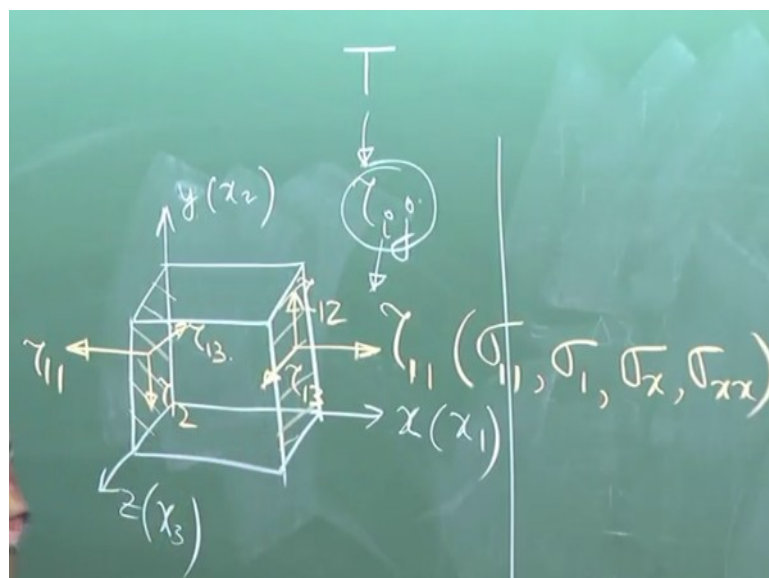 T
τij
y(x2)
τ12
τ11
τ13
τ13
τ11 (σ11, σ1, σx, σxx)
τ12
x(x1)
z(x3)